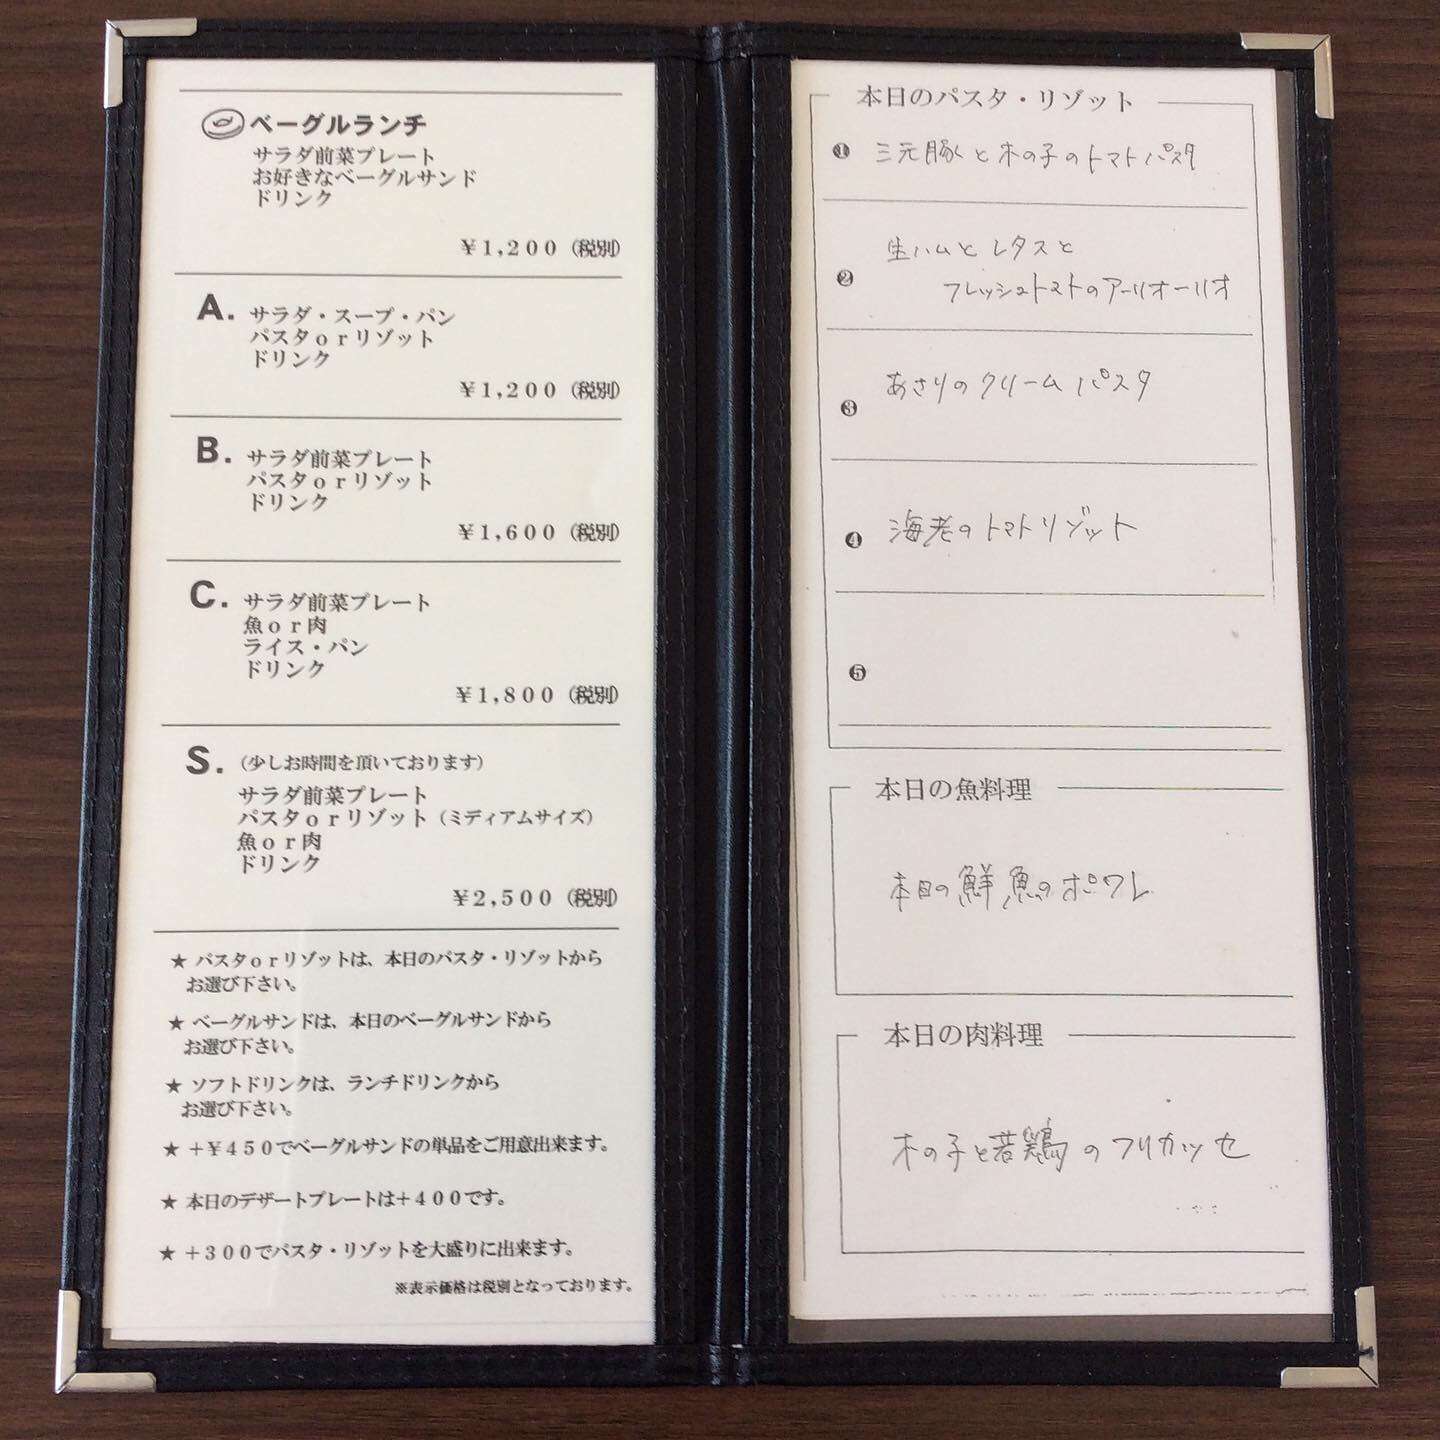 ベーグルランチ
サラダ前菜プレート
お好きなベーグルサンド
ドリンク
￥1,200（税別）
A. サラダ・スープ・パン
パスタorリゾット
ドリンク
￥1,200（税別）
B. サラダ前菜プレート
パスタorリゾット
ドリンク
￥1,600（税別）
C. サラダ前菜プレート
魚or肉
ライス・パン
ドリンク
￥1,800（税別）
S.（少しお時間を頂いております）
サラダ前菜プレート
パスタorリゾット（ミディアムサイズ）
魚or肉
ドリンク
￥2,500（税別）
★ パスタorリゾットは、本日のパスタ・リゾットから
お選び下さい。
★ ベーグルサンドは、本日のベーグルサンドから
お選び下さい。
★ ソフトドリンクは、ランチドリンクから
お選び下さい。
★ +￥450でベーグルサンドの単品をご用意出来ます。
★ 本日のデザートプレートは+400です。
★ +300でパスタ・リゾットを大盛りに出来ます。
※表示価格は税別となっております。
本日のパスタ・リゾット
❶ 三元豚と木の子のトマトパスタ
❷ 生ハムとレタスと
フレッシュトマトのアーリオーリオ
❸ あさりのクリームパスタ
❹ 海老のトマトリゾット
❺
本日の魚料理
本日の鮮魚のポワレ
本日の肉料理
木の子と若鶏のフリカッセ